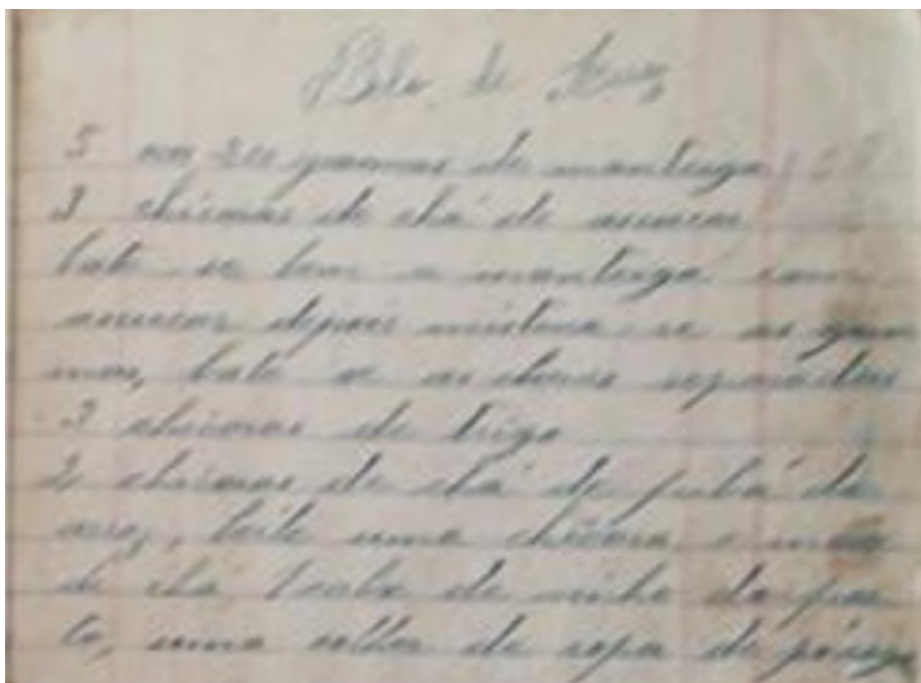 Bolo de Arroz
5 ovos 200 gramas de manteiga
3 chicaras de chá de assucar
bate se bem a manteiga com
assucar depois mistura-se as gem
mas, bate se as claras separadas
3 chicaras de trigo
2 chicaras de chá de fubá de
arroz, leite uma chicara e meia
de chá de vinho do por
to, uma colher de sopa de